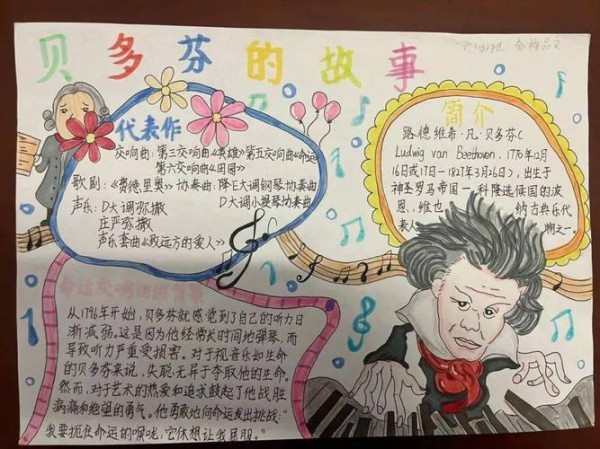 贝多芬的故事
六(3)班
代表作
交响曲:第三交响曲《英雄》第五交响曲《命运》
第六交响曲《田园》
歌剧:《费德里奥》协奏曲:降E大调钢琴协奏曲
D大调小提琴协奏曲
声乐:D大调弥撒
庄严弥撒
声乐套曲《致远方的爱人》
简介
路德维希·凡·贝多芬(
Ludwig van Beethoven, 1770年12月
16日或17日-1827年3月26日), 出生于
神圣罗马帝国-科隆选侯国的波
恩, 维也 纳古典乐代
表人 物之一。
命运交响曲的背景
从1796年开始,贝多芬就感觉到了自己的听力日
渐减弱。这是因为他经常长时间地弹琴,而
导致听力严重受损害。对于视音乐如生命
的贝多芬来说,失聪无异于夺取他的生命。
然而,对于艺术的热爱和追求鼓起了他战胜
病痛和绝望的勇气。他勇敢地向命运发出挑战:"
我要扼住命运的喉咙,它休想让我屈服。"